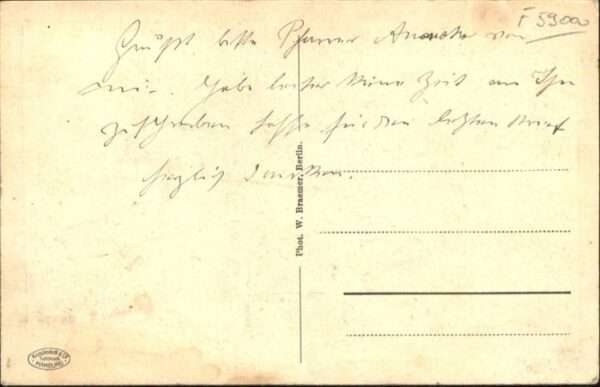 F 59000
Grüßt bitte Pfarrer von
mir. Habe leider keine Zeit an Ihn
zu schreiben lasse für den letzten Brief
herzlich danken.
Phot. W. Braemer, Berlin.